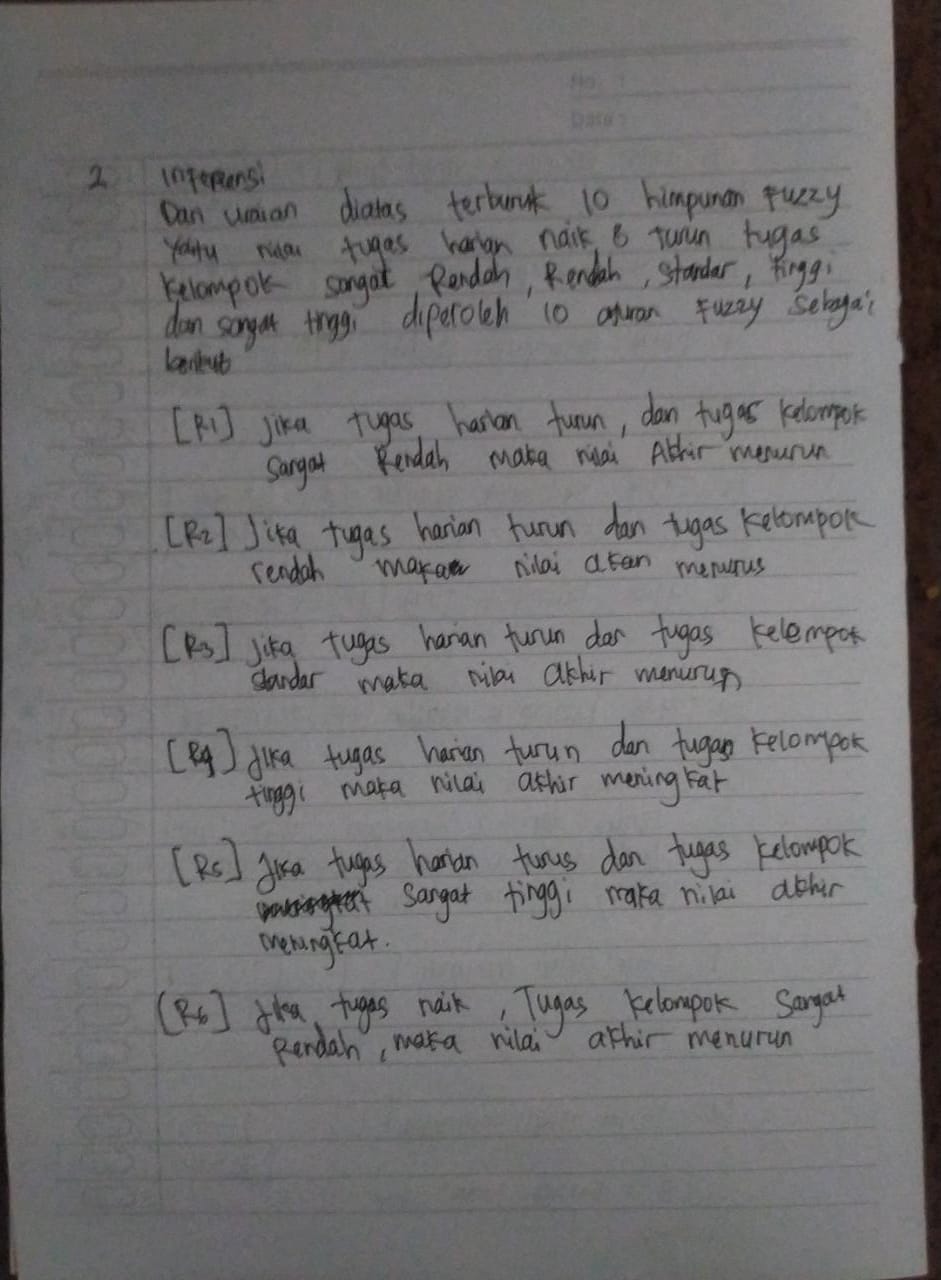 No :
Date :
2 Inferensi
Dari uraian diatas terbentuk 10 himpunan Fuzzy
Yaitu nilai tugas harian naik & turun tugas
Kelompok sangat Rendah, Rendah, standar, tinggi
dan sangat tinggi diperoleh 10 aturan Fuzzy Sebagai
berikut
[R1] Jika tugas harian turun, dan tugas kelompok
Sangat Rendah maka nilai Akhir menurun
[R2] Jika tugas harian turun dan tugas Kelompok
rendah maka nilai akan menurus
[R3] Jika tugas harian turun dan tugas kelempok
standar maka nilai akhir menurun
[R4] Jika tugas harian turun dan tugas kelompok
tinggi maka nilai akhir meningkat
[R5] Jika tugas harian turus dan tugas kelompok
sangat tinggi maka nilai akhir
meningkat.
[R6] Jika tugas naik, Tugas kelompok Sangat
Rendah, maka nilai akhir menurun